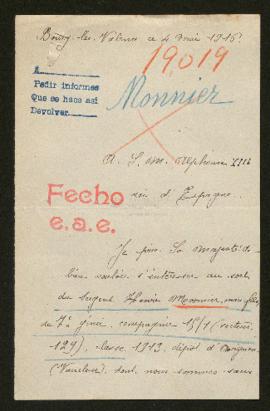 Bourg-les-Valence ce 4 mai 1915
19019
A
Pedir informes
Que se hace así
Devolver
Monnier
A. S. M. Alphonse XIII
roi d'Espagne.
Fecho
e.a.e.
Je prie Sa Majesté de
bien vouloir s'intéresser au sort
du sergent Monnier, mon fils,
du 7e génie, compagnie 15/1 (secteur
129), classe 1913, dépôt d'Avignon
(Vaucluse), dont nous sommes sans